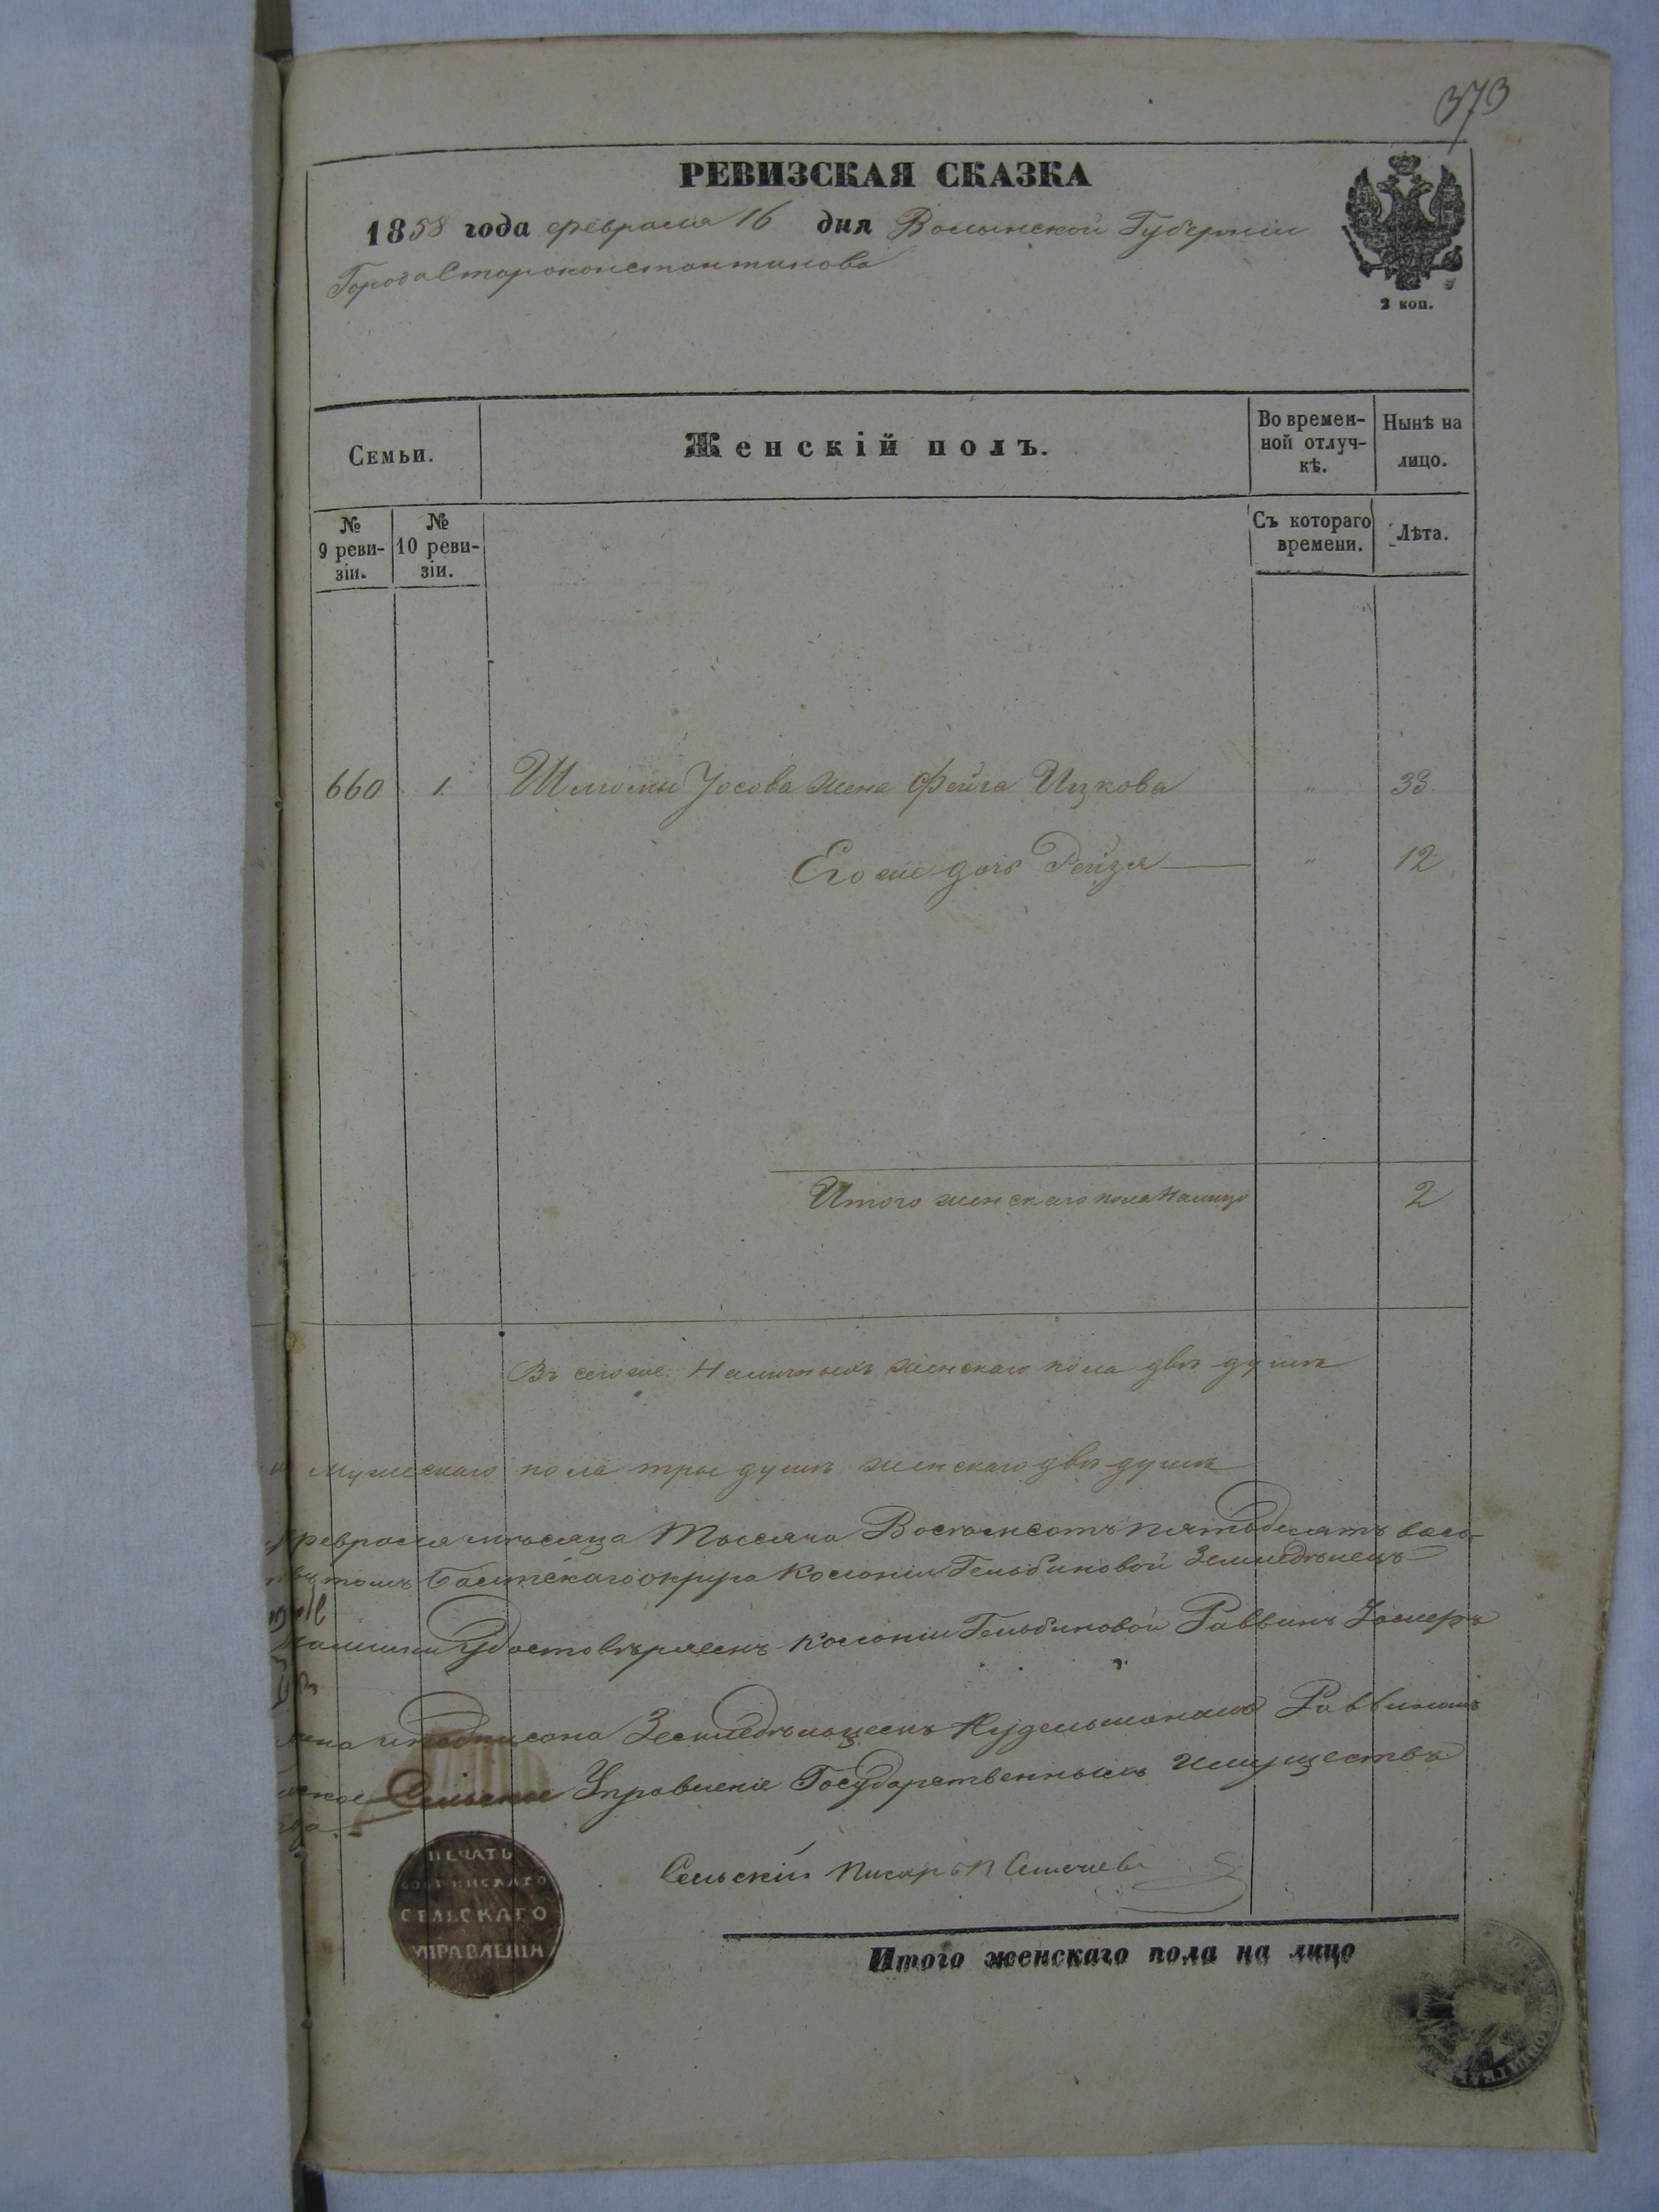 373
РЕВИЗСКАЯ СКАЗКА
1858 года февраля 16 дня Волынской Губерніи
Города Староконстантинова
2 коп.
Семьи.
Женскій полъ.
Во времен-
ной отлуч-
кѣ.
Нынѣ на
лицо.
№
9 реви-
зіи.
№
10 реви-
зіи.
Съ котораго
времени.
Лѣта.
660 1. Шлиомы Іосова жена Фейга Ицкова " 33
Его же дочь Рейзя " 12
Итого женскаго пола налицо 2
Въ сего же Наличныхъ женскаго пола двѣ душѣ
мужескаго пола три душѣ женскаго двѣ душѣ
февраля мѣсяца Тысяча Восемьсотъ пятьдесятъ
Балтскаго округа Колоніи Гельбиновой Земледѣлецъ
удостовѣряемъ Колоніи Гельбиновой Раввинъ
подписана Земледѣльцемъ Нудельманамъ Раввиномъ
Сельское Управленіе Государственныхъ Имуществъ
ПЕЧАТЬ
СЕЛЬСКАГО
УПРАВЛЕНІЯ
Сельскій Писарь П
Итого женскаго пола на лицо